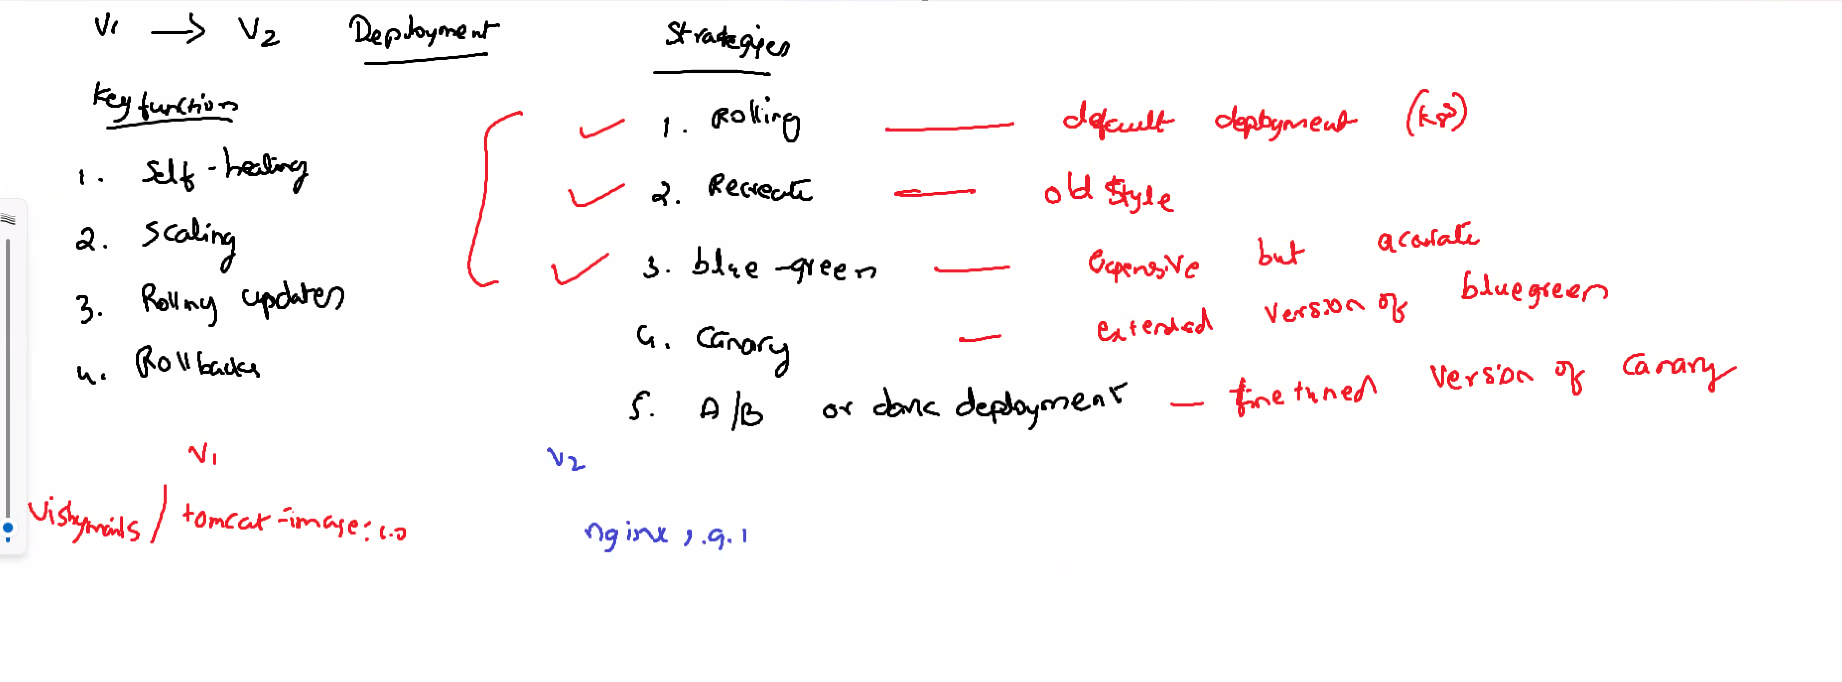 V1 → V2 Deployment
Key function
1. Self-healing
2. Scaling
3. Rolling updates
4. Rollbacks
Strategies
1. Rolling — default deployment (k8)
2. Recreate — old style
3. blue-green — expensive but
4. Canary — extended version of bluegreen
5. A/B or deployment — fine tuned version of Canary
V1
/ tomcat-image:1.0
V2
nginx